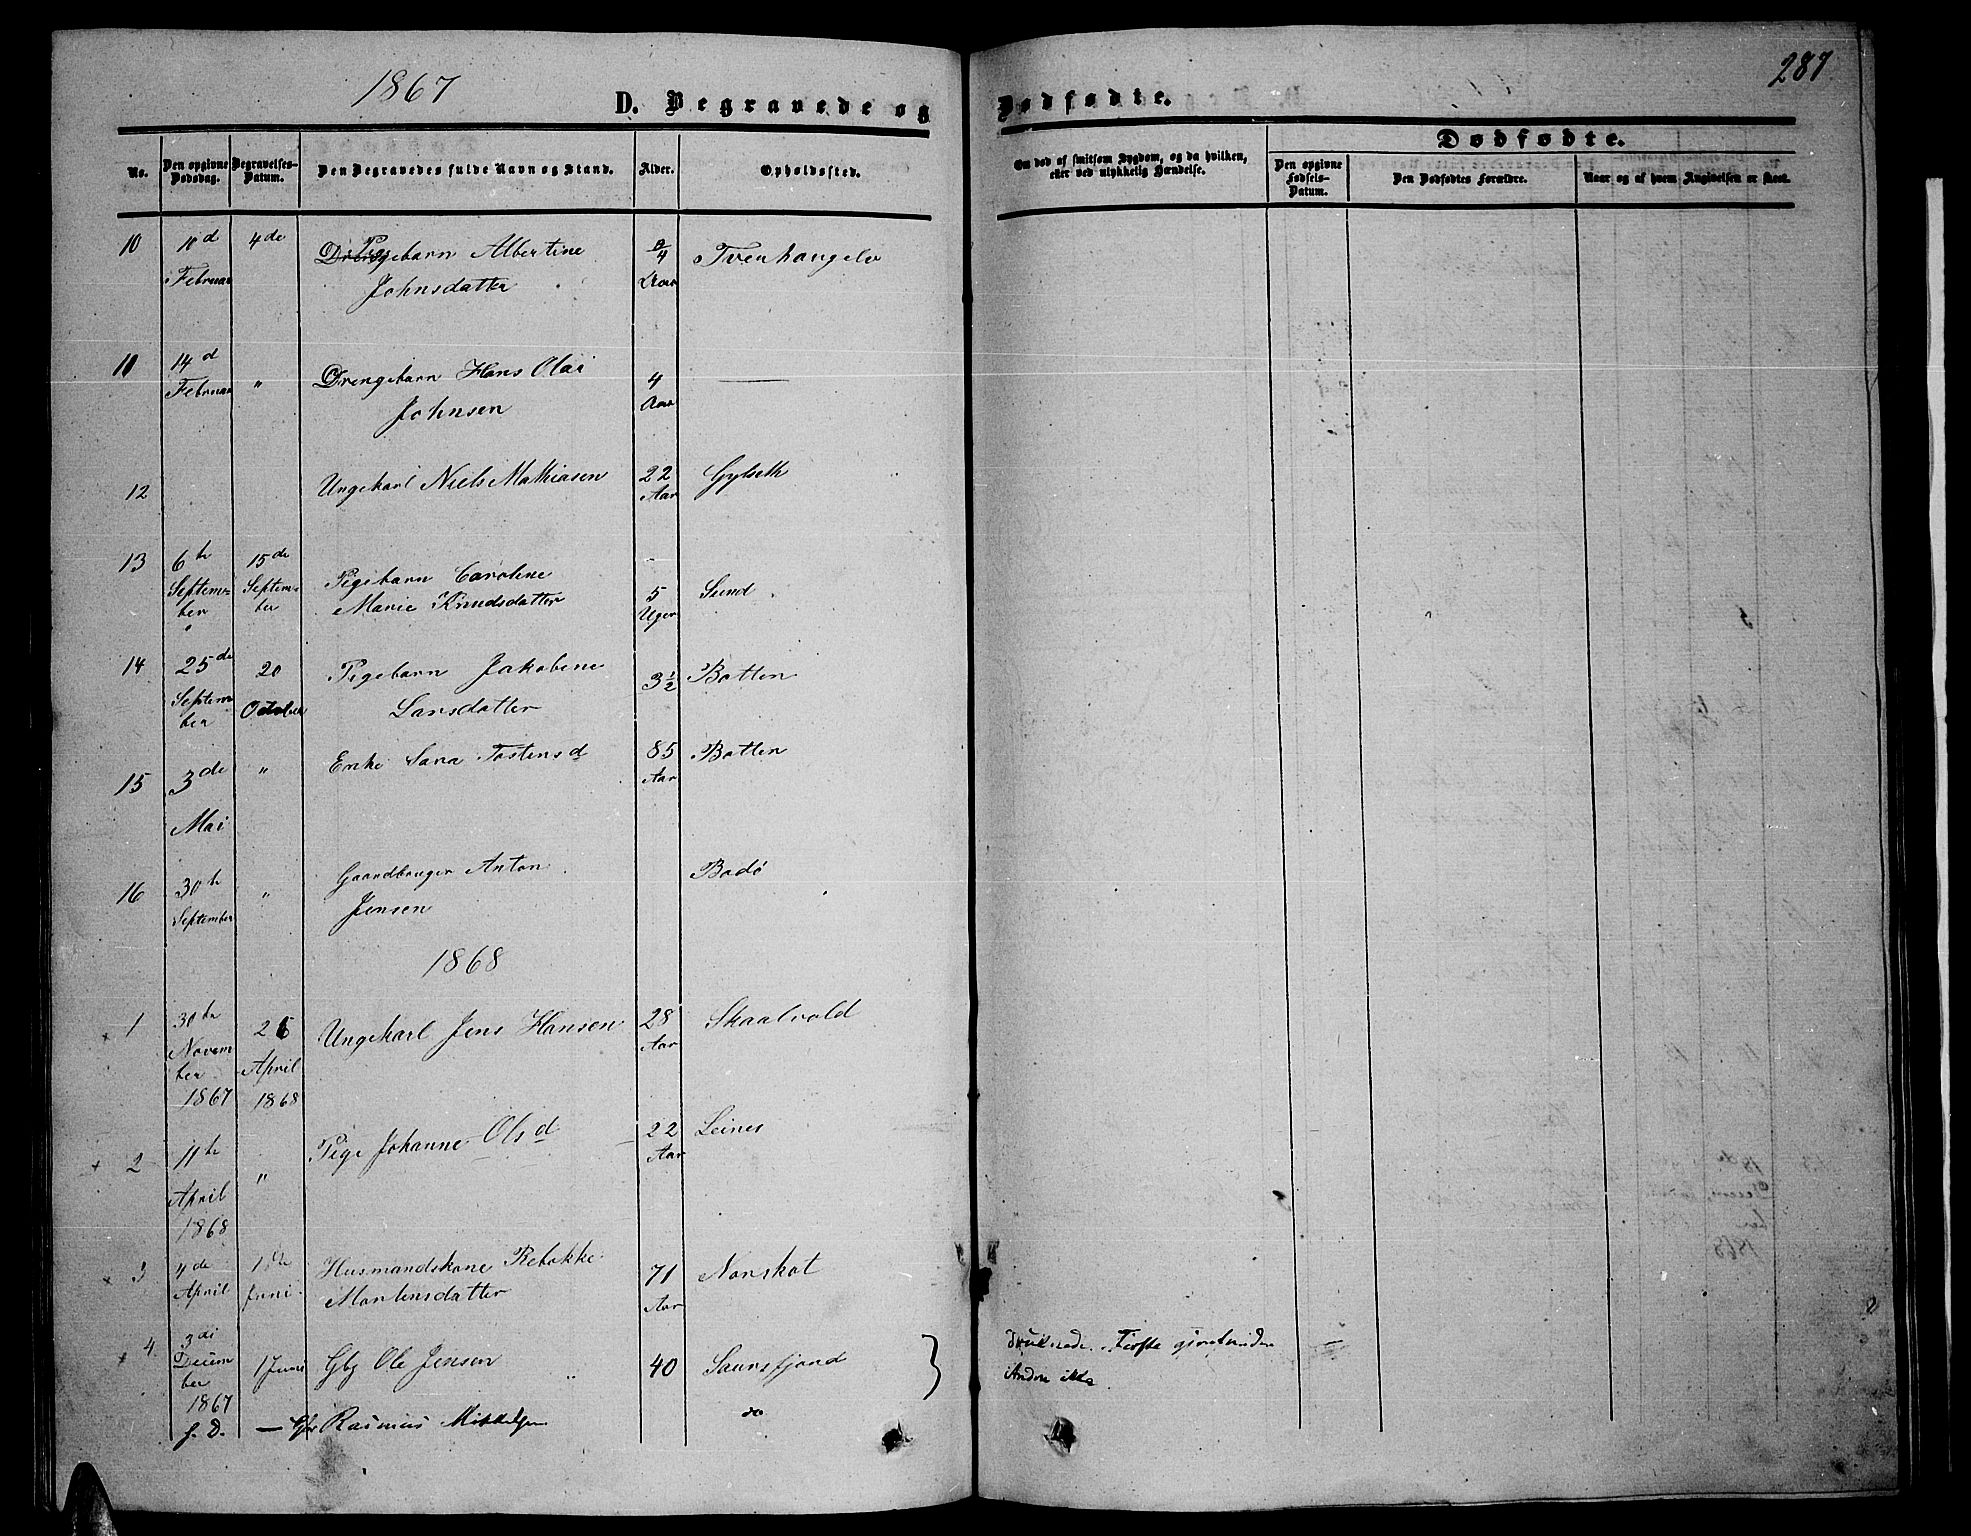 1867
287
D. Begravede og Dødfødte.
No.
Den opgivne Dødsdag.
Begravelses-Datum.
Den Begravedes fulde Navn og Stand.
Alder.
Opholdssted.
Om død af smitsom Sygdom, og da hvilken, eller ved ulykkelig Hændelse.
Dødfødte.
Den opgivne Fødsels-Datum.
Den Dødfødtes Forældre.
Naar og af hvem Angivelsen er skeet.
10 10d 4de Pigebarn Albertine
Februar Johnsdatter
11 14d Drengebarn Hans Olai 4
Februar " Johnsen Aar
12 Ungekarl Niels Mathiasen 22 Gylseth
Aar
13 6te 15de Pigebarn Caroline
Septem- Septem- Marie Knudsdatter 5 Sund
ber ber Uger
14 25de 20 Pigebarn Jakobine 3½ Botten
Septem October Larsdatter
ber
15 3de " Enke Sara Tostensd 85 Botten
Mai Aar
16 30te " Gaardbruger Anton Bodö
September Jensen
1868
1 30te 26 Ungekarl Jens Hansen 28 Skaalvold
Novem April Aar
ber
1867 1868
2 11te " Pige Johanne Olsd 22 Leines
April Aar
1868
3 4de 1ste Husmandskone Rebekke 71 Norskot
April Juni Mortensdatter Aar
4. 3di 1 Juni Gbr Ole Jensen 40 Saursfjord druknede. Første gjenfunden
Decem Anden ikke
ber
1867
s. D. — Gbr Rasmus Mikkelsen do